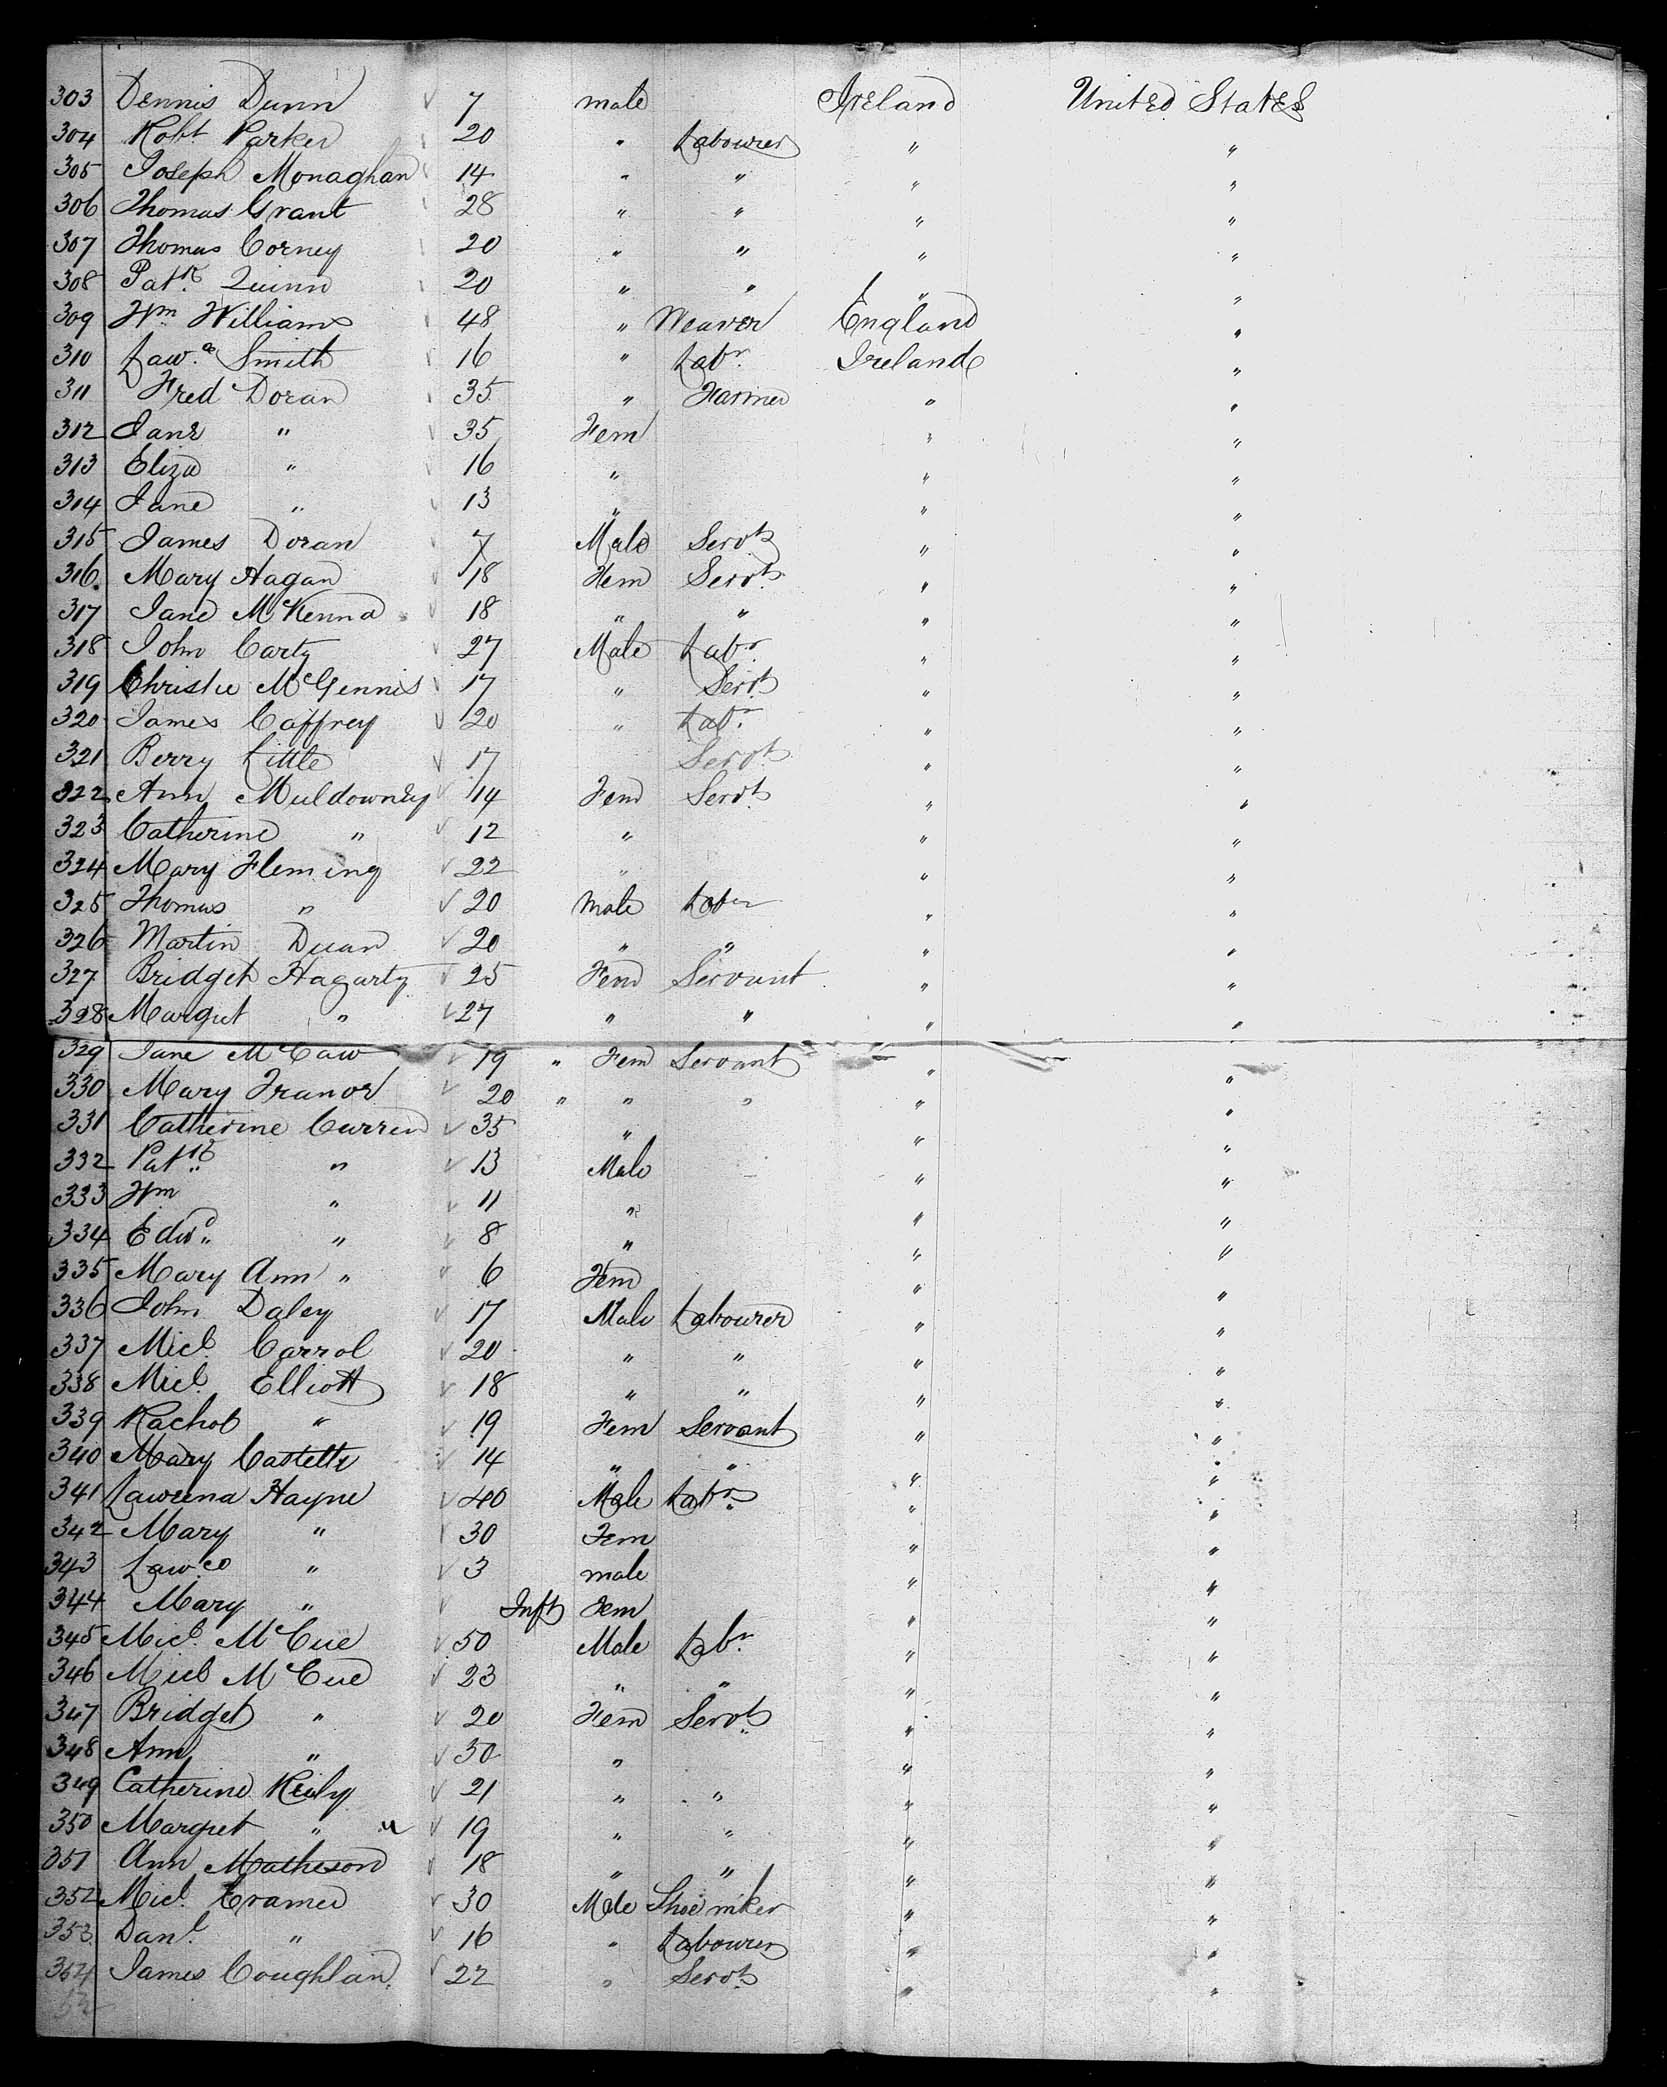 303 Dennis Dunn 7 male Ireland United States
304 Robt. Parker 20 " Labourer " "
305 Joseph Monaghan 14 " " " "
306 Thomas Grant 28 " " " "
307 Thomas Corney 20 " " " "
308 Patk. Quinn 20 " " " "
309 Wm. Williams 48 " Weaver England "
310 Lawce. Smith 16 " Labr. Ireland "
311 Fred Doran 35 " Farmer " "
312 Jane " 35 Fem " "
313 Eliza " 16 " " "
314 Jane " 13 " " "
315 James Doran 7 Male Servt " "
316 Mary Hagan 18 Fem Servt. " "
317 Jane McKenna 18 " " " "
318 John Carty 27 Male Labr. " "
319 Christie McGennis 17 " Servt " "
320 James Caffrey 20 " Labr. " "
321 Berry Little 17 Servt. " "
322 Ann Muldowney 14 Fem Servt. " "
323 Catherine " 12 " " "
324 Mary Fleming 22 " " "
325 Thomas " 20 Male Labr " "
326 Martin Duan 20 " " " "
327 Bridget Hagarty 25 Fem Servant " "
328 Margret " 27 " " " "
329 Jane McCaw 19 " Fem Servant " "
330 Mary Tranor 20 " " " " "
331 Catherine Curren 35 " " "
332 Patk. " 13 Male " "
333 Wm " 11 " " "
334 Edwd. " 8 " " "
335 Mary Ann " 6 Fem " "
336 John Daley 17 Male Labourer " "
337 Micl. Carrol 20 " " " "
338 Micl. Elliott 18 " " " "
339 Rachel " 19 Fem Servant " "
340 Mary 14 " " " "
341 Hayne 40 Male Labr. " "
342 Mary " 30 Fem " "
343 Lawce " 3 male " "
344 Mary " Inft Fem " "
345 Micl. McCue 50 Male Labr. " "
346 Micl McCue 23 " " " "
347 Bridget " 20 Fem Servt. " "
348 Ann " 30 " " "
349 Catherine Reily 21 " " " "
350 Margret " 19 " " " "
351 Ann Matheson 18 " " " "
352 Micl. Cramer 30 Male Shoemker " "
353 Danl. " 16 " Labourer " "
354 James Coughlan 22 " Servt. " "